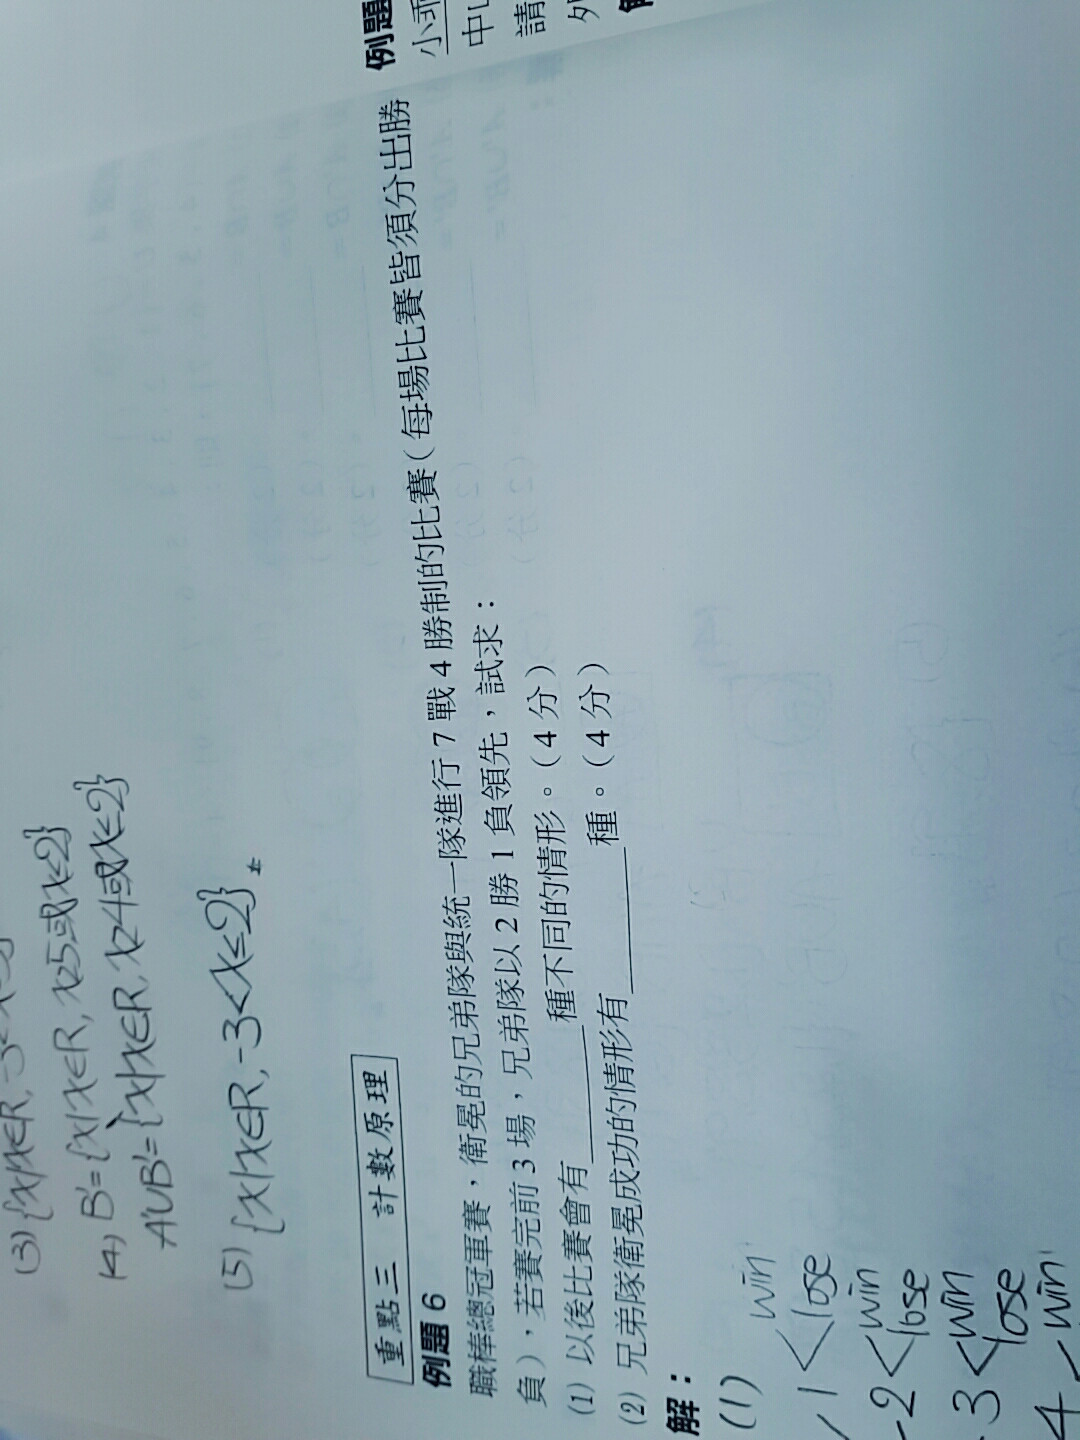 (3) {x|x∈R, -3<x
(4) B'={x|x∈R, x≥5或x≤2}
A'∪B'={x|x∈R, x≥4或x≤2}
(5) {x|x∈R, -3<x≤2}
重點三 計數原理
例題 6
職棒總冠軍賽，衛冕的兄弟隊與統一隊進行 7 戰 4 勝制的比賽（每場比賽皆須分出勝
負），若賽完前 3 場，兄弟隊以 2 勝 1 負領先，試求：
(1) 以後比賽會有________種不同的情形。（4 分）
(2) 兄弟隊衛冕成功的情形有________種。（4 分）
解：
(1)
win
1 < lose
2 < win
lose
3 < win
lose
4 win
例題
小乖
中
請
外